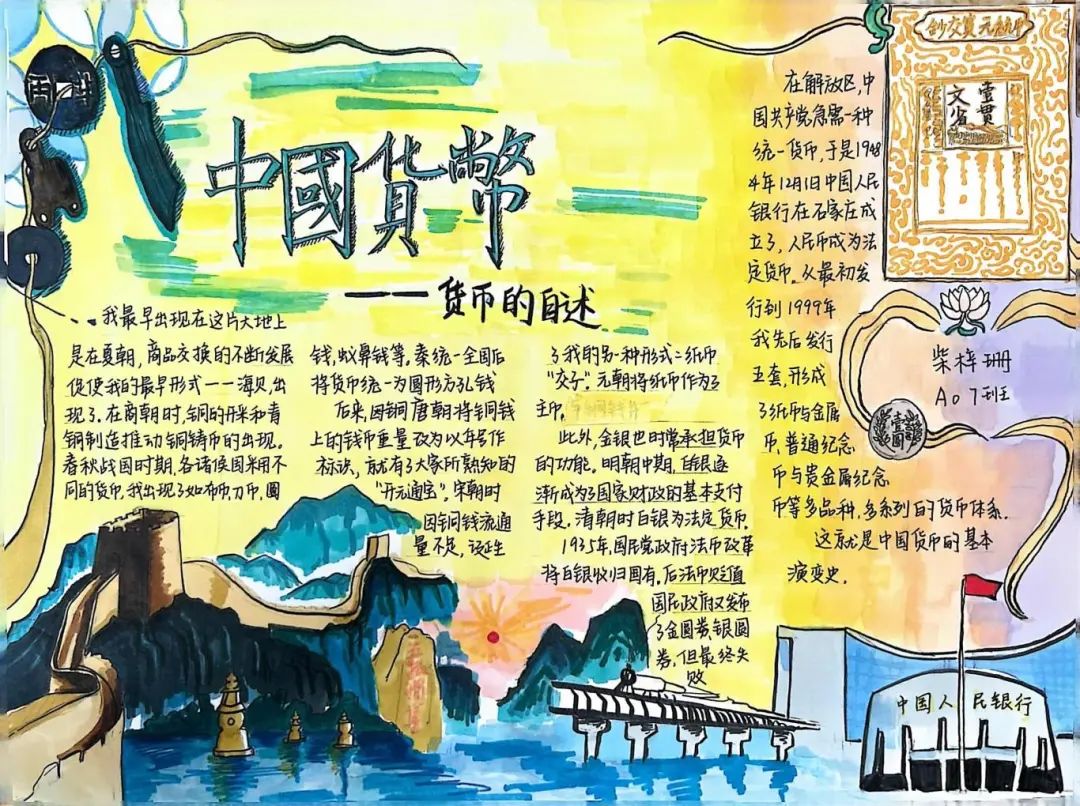 中國貨幣
——货币的自述
我最早出现在这片大地上
是在夏朝，商品交换的不断发展
促使我的最早形式——海贝，出
现了。在商朝时，铜的开采和青
铜制造推动铜铸币的出现。
春秋战国时期，各诸侯国采用不
同的货币，我出现了如布币，刀币，圜
钱，蚁鼻钱等。秦统一全国后
将货币统一为圆形方孔钱
后来，因铜唐朝将铜钱
上的钱币重量改为以年号作
标识，就有了大家所熟知的
“开元通宝”。宋朝时
因铜钱流通
量不足，诞生
了我的另一种形式：纸币
“交子”。元朝将纸币作为了
主币。
此外，金银也时常承担货币
的功能。明朝中期，白银逐
渐成为了国家财政的基本支付
手段。清朝时白银为法定货币。
1935年，国民党政府法币改革
将白银收归国有。后法币贬值
国民政府又发布
了金圆券，银圆
券，但最终失
败
在解放区，中
国共产党急需一种
统一货币，于是1948
年12月1日中国人民
银行在石家庄成
立了，人民币成为法
定货币。从最初发
行到1999年
我先后发行
五套，形成
了纸币与金属
币，普通纪念
币与贵金属纪念
币等多品种，多系列的货币体系。
这就是中国货币的基本
演变史。
壹贯
文省
柴梓珊
A07班
壹圆
中国人民银行